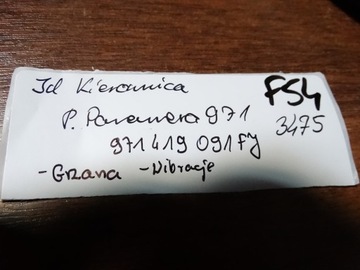 Id Kierownica
P. Panamera 971
971 419 091 FY
- Grzana - Wibracje
F54
3475